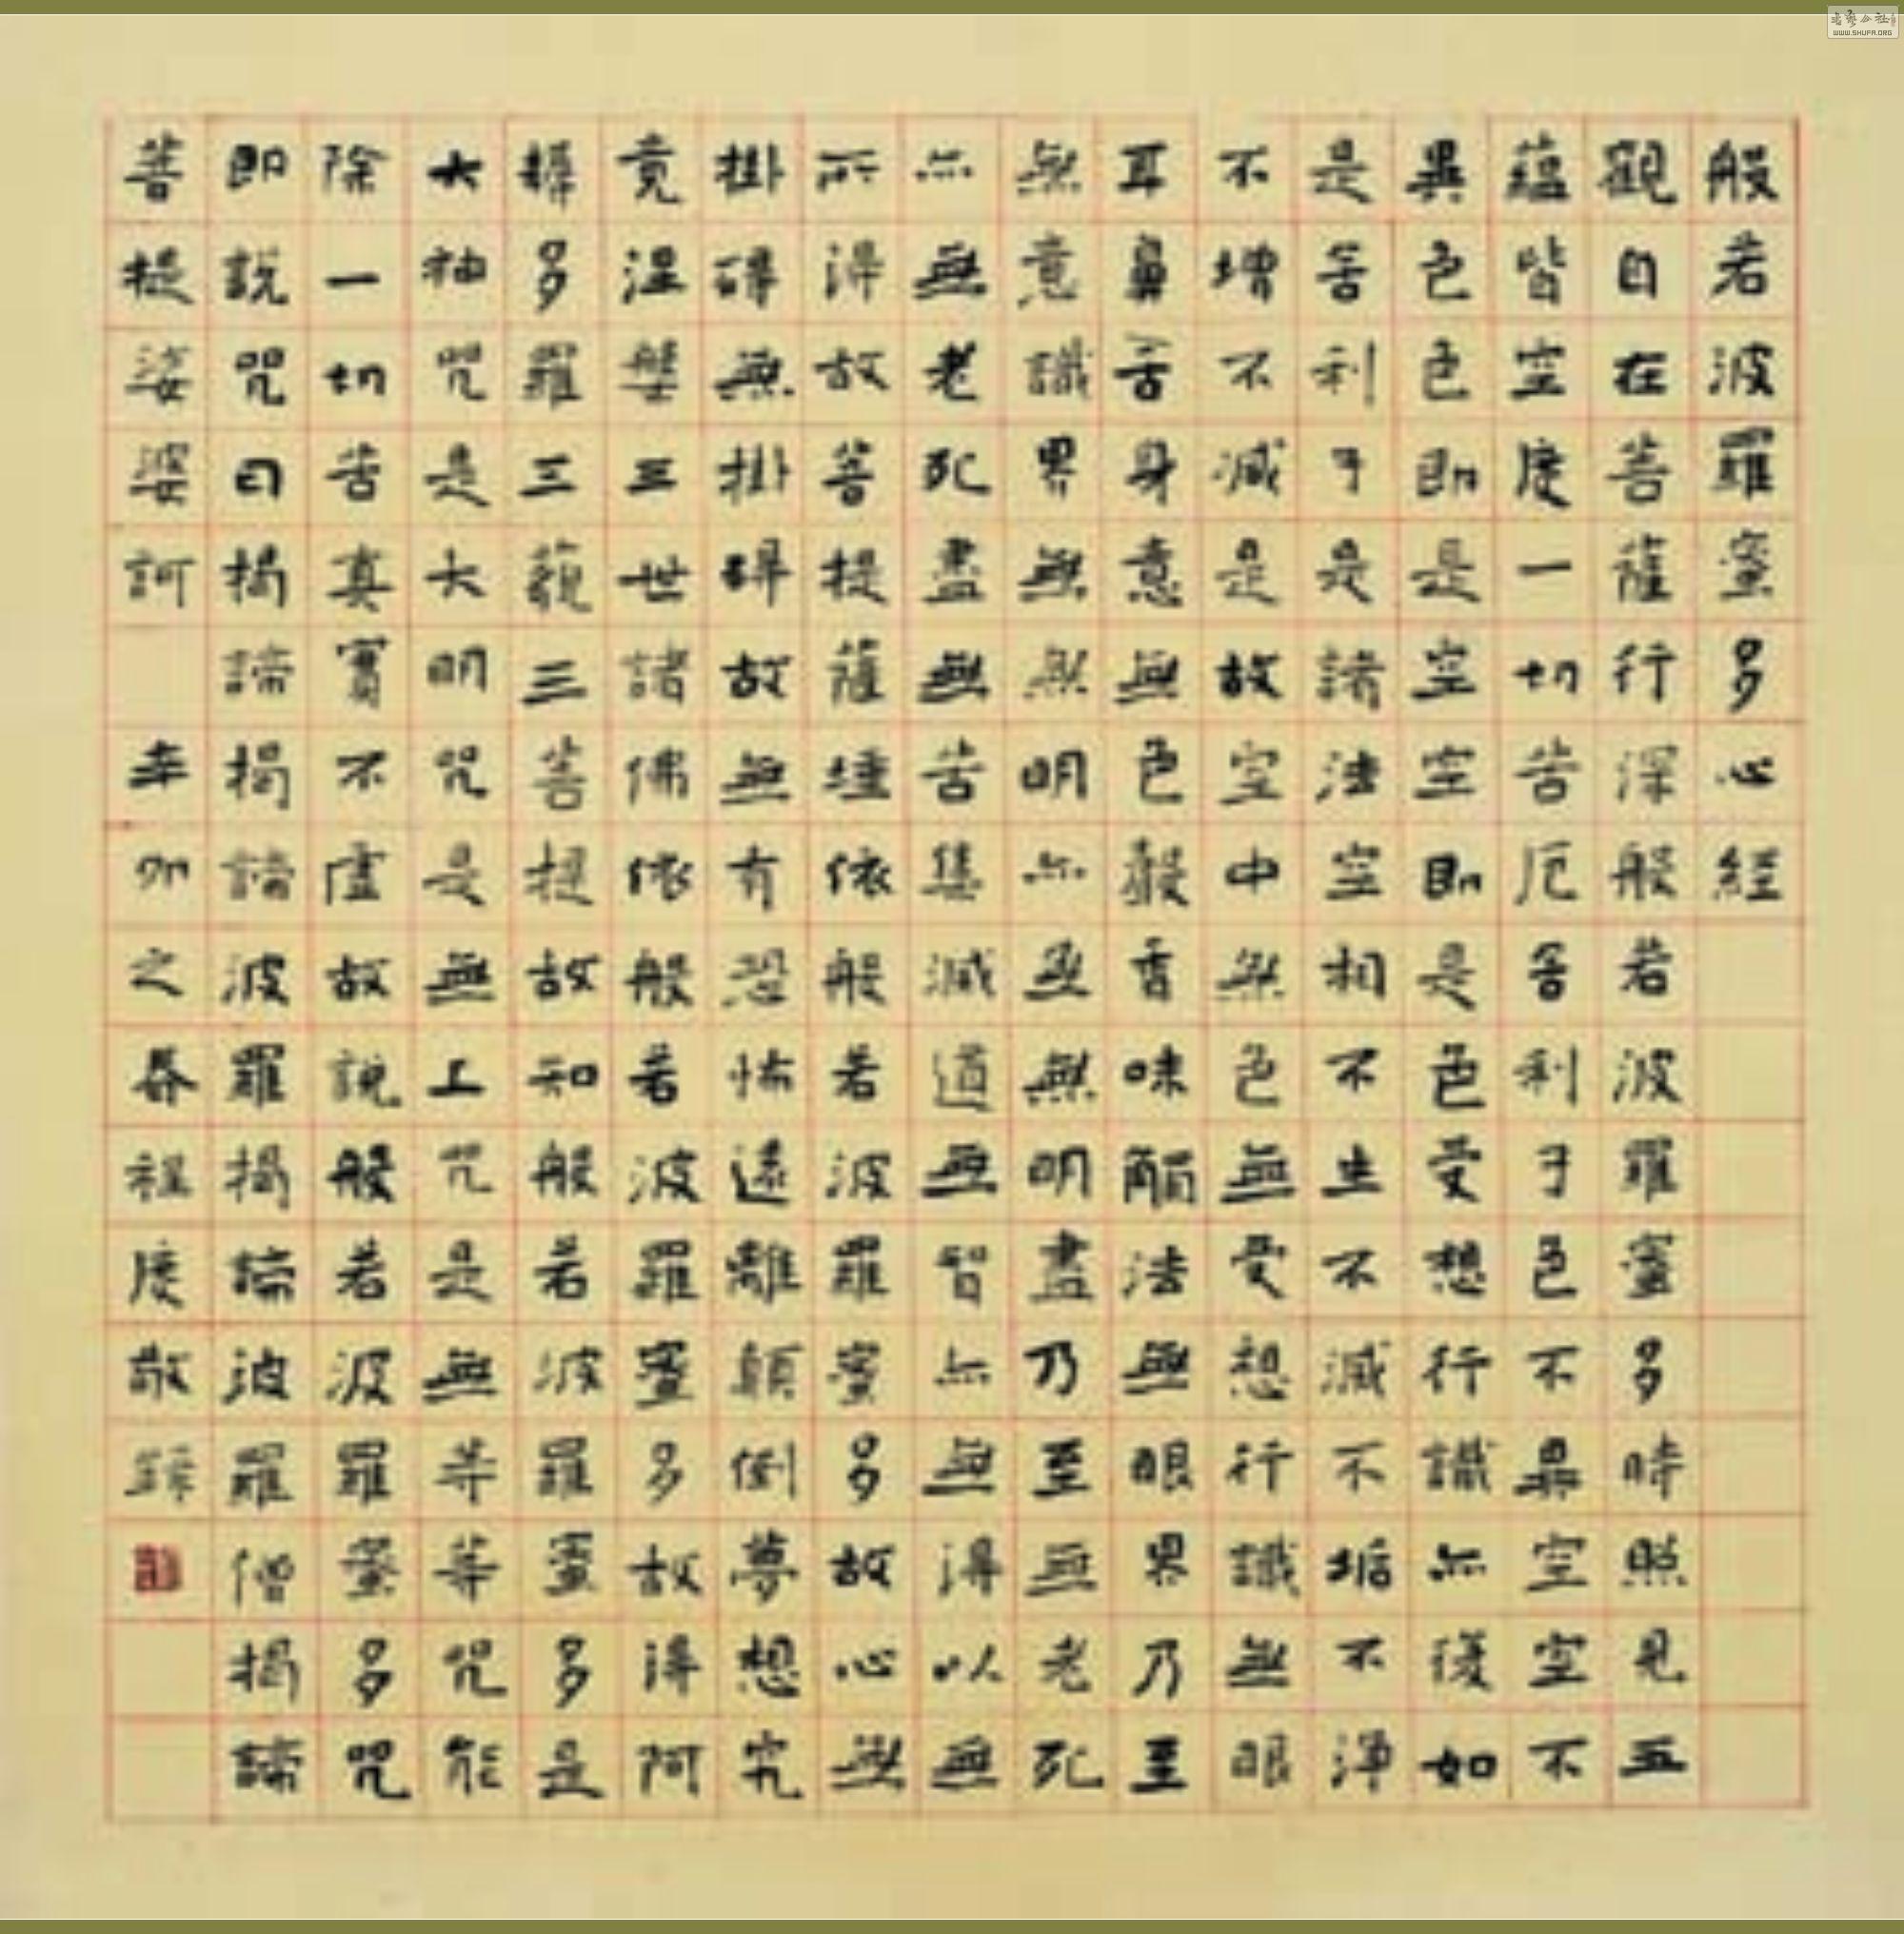 般若波羅蜜多心經
觀自在菩薩行深般若波羅蜜多時照見五
蘊皆空度一切苦厄舍利子色不異空空不
異色色即是空空即是色受想行識亦復如
是舍利子是諸法空相不生不滅不垢不淨
不增不減是故空中無色無受想行識無眼
耳鼻舌身意無色聲香味觸法無眼界乃至
無意識界無無明亦無無明盡乃至無老死
亦無老死盡無苦集滅道無智亦無得以無
所得故菩提薩埵依般若波羅蜜多故心無
掛碍無掛碍故無有恐怖遠離顛倒夢想究
竟涅槃三世諸佛依般若波羅蜜多故得阿
耨多羅三藐三菩提故知般若波羅蜜多是
大神咒是大明咒是無上咒是無等等咒能
除一切苦真實不虛故說般若波羅蜜多咒
即說咒曰揭諦揭諦波羅揭諦波羅僧揭諦
菩提娑婆訶 辛卯之春祖度敬
WWW.SHUFA.ORG